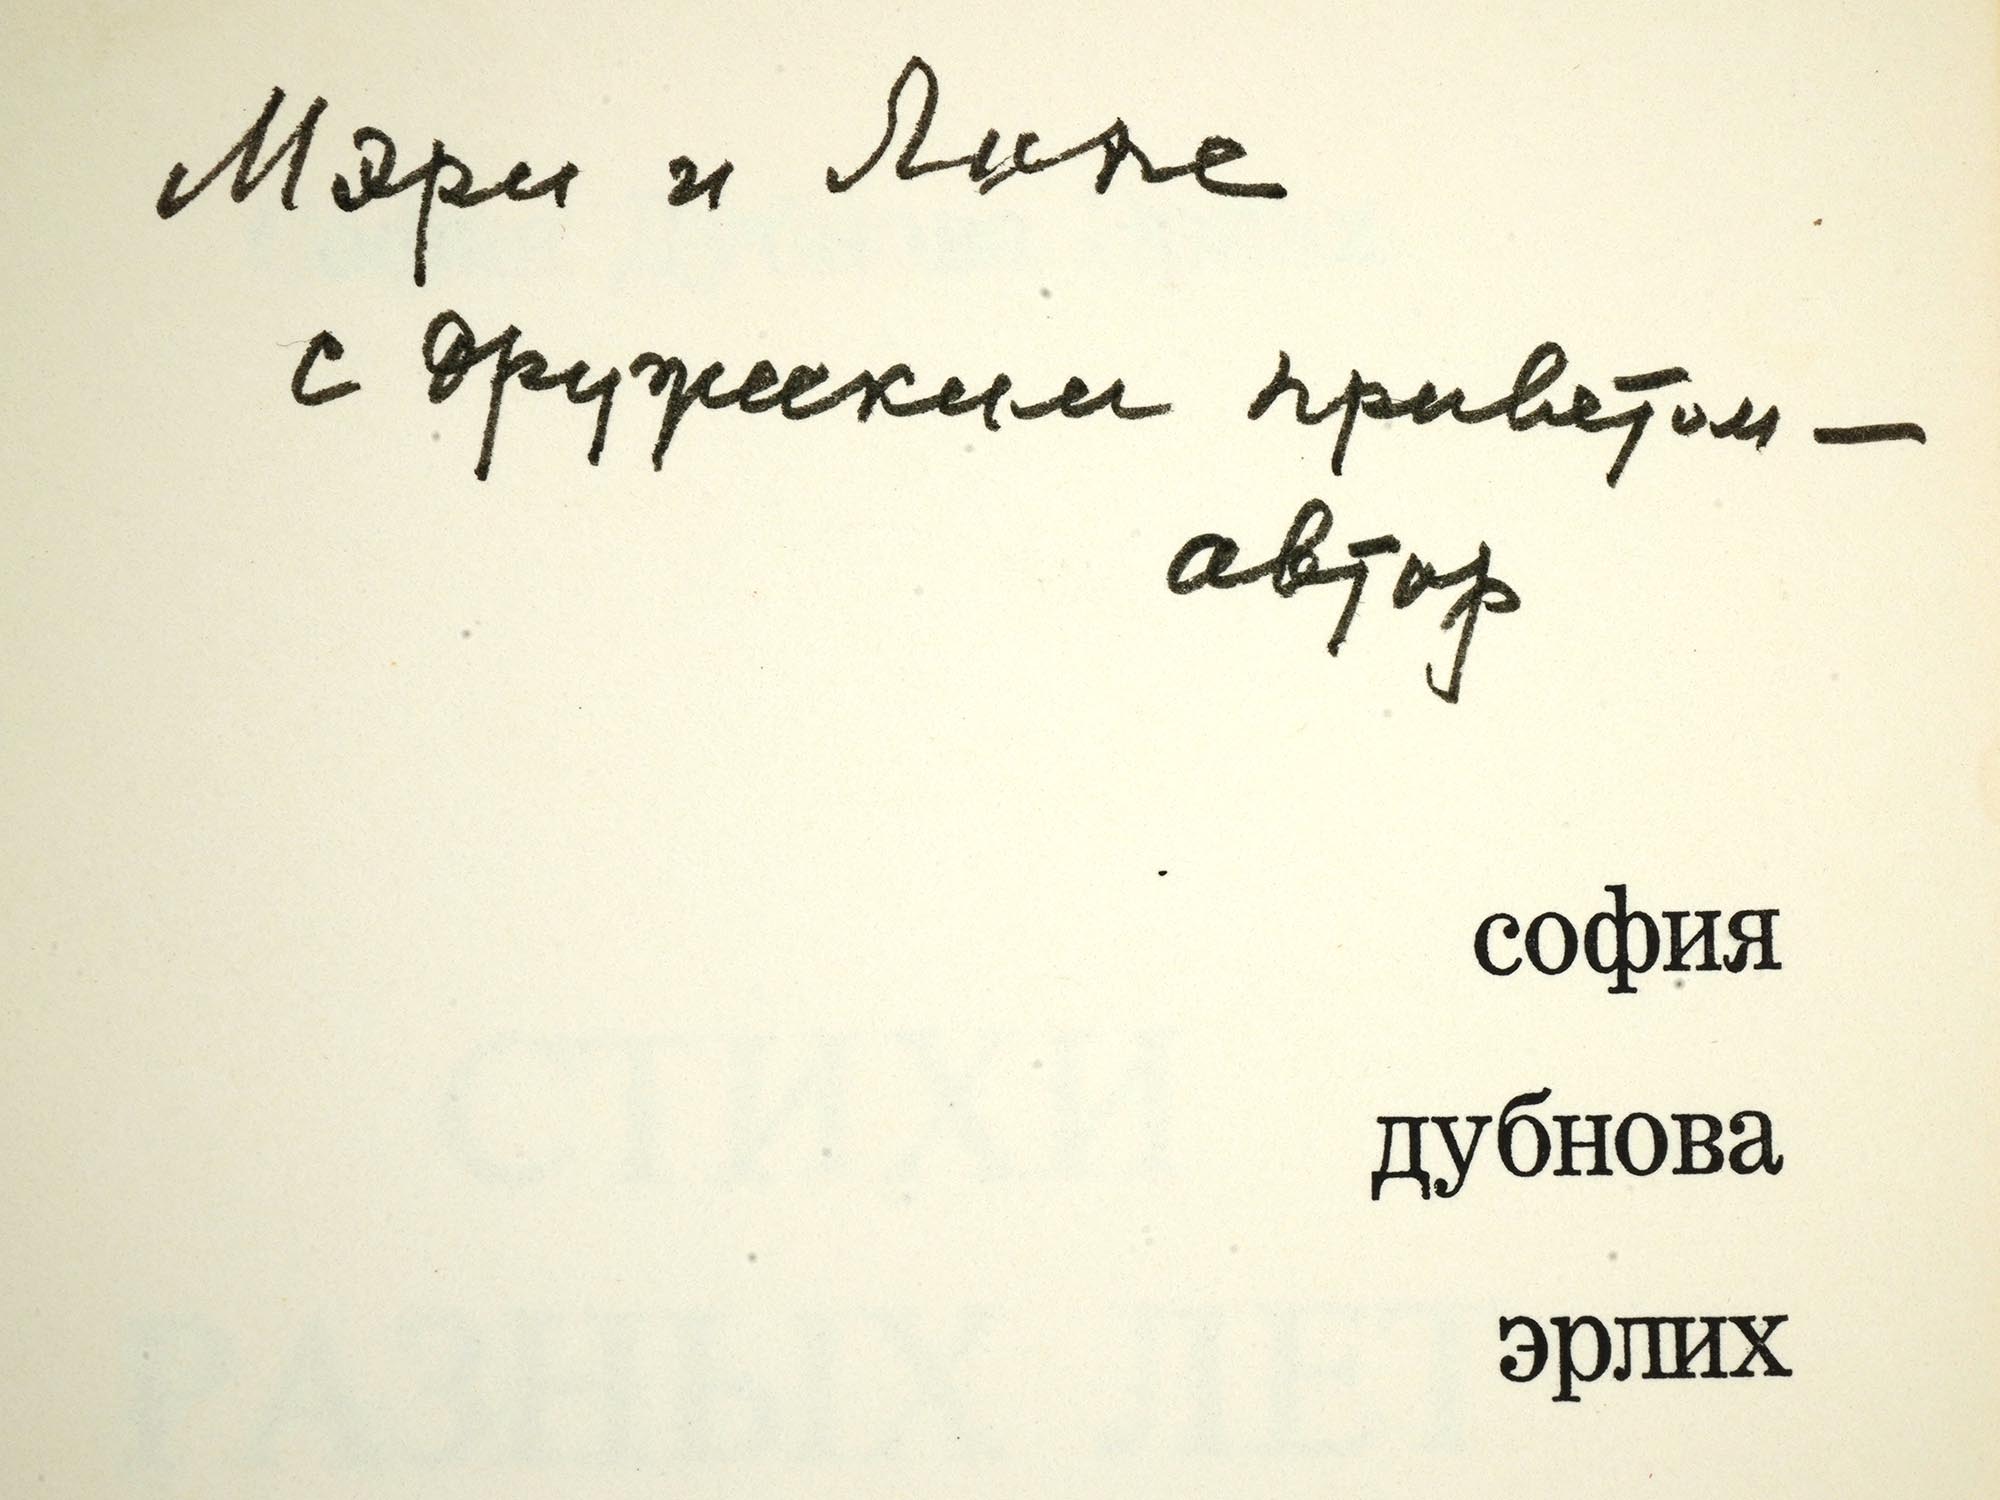 Мэри и Лине
с дружеским приветом —
автор
софия
дубнова
эрлих